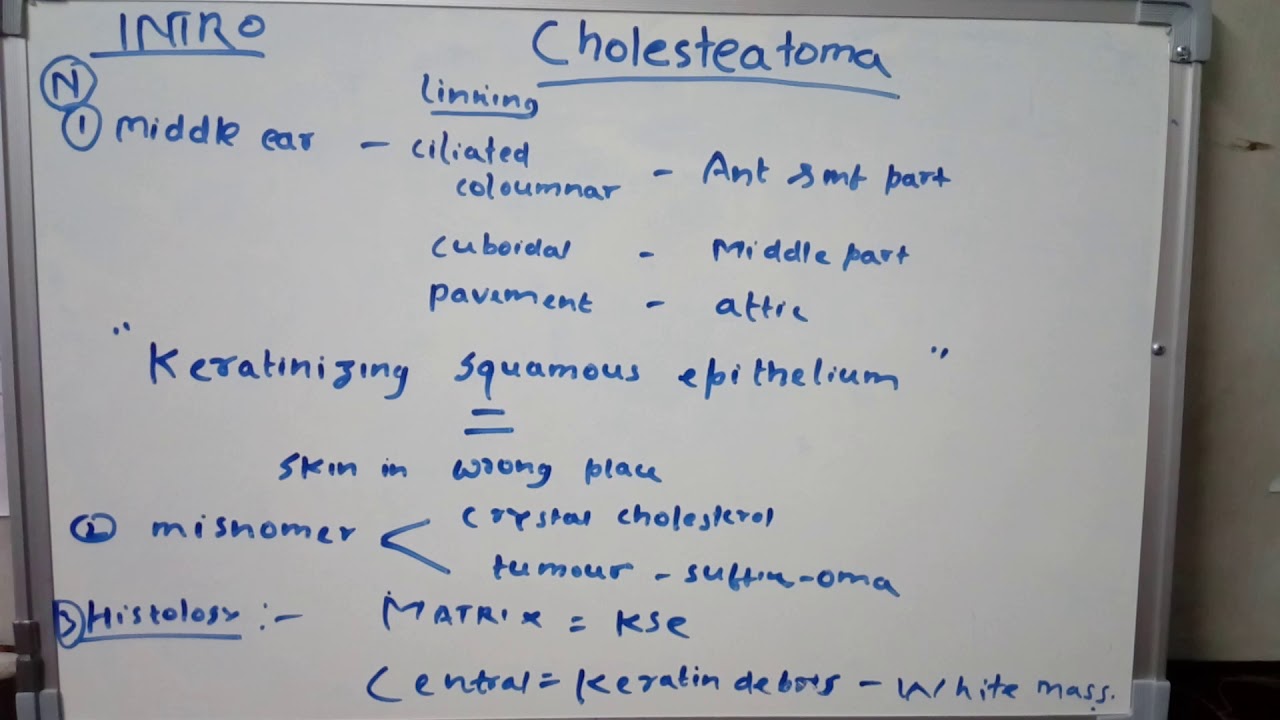 INTRO
Cholesteatoma
N
Linning
① Middle ear - ciliated
coloumnar - Ant & inf part
cuboidal - Middle part
pavement - attic
" Keratinizing squamous epithelium "
=
skin in wrong place
② misnomer < crystal cholesterol
tumour - suffix - oma
③ Histology :- MATRIX = KSE
Central = Keratin debris - White mass.